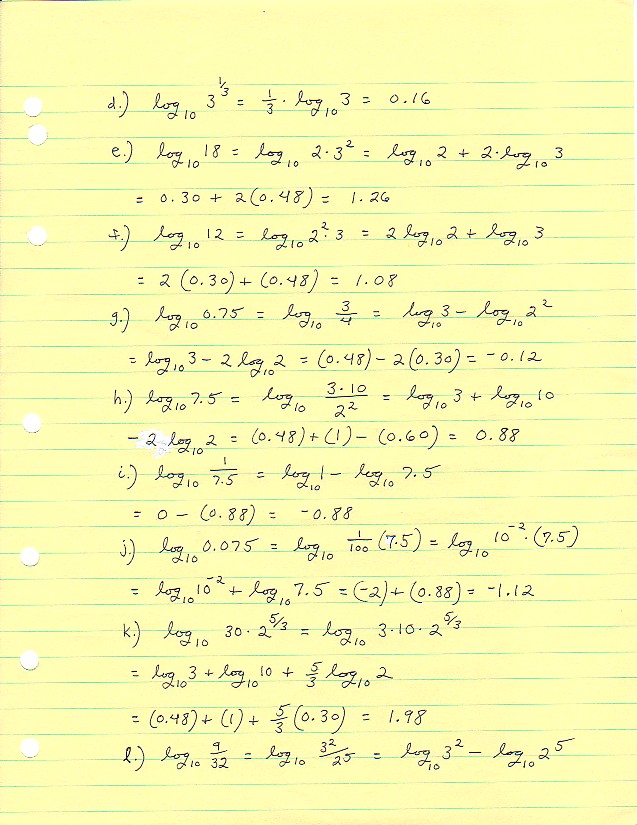 d.) log₁₀ 3^(1/3) = 1/3 · log₁₀ 3 = 0.16
e.) log₁₀ 18 = log₁₀ 2·3² = log₁₀ 2 + 2·log₁₀ 3
= 0.30 + 2(0.48) = 1.26
f.) log₁₀ 12 = log₁₀ 2²·3 = 2 log₁₀ 2 + log₁₀ 3
= 2 (0.30) + (0.48) = 1.08
g.) log₁₀ 0.75 = log₁₀ 3/4 = log₁₀ 3 − log₁₀ 2²
= log₁₀ 3 − 2 log₁₀ 2 = (0.48) − 2(0.30) = −0.12
h.) log₁₀ 7.5 = log₁₀ 3·10/2² = log₁₀ 3 + log₁₀ 10
− 2 log₁₀ 2 = (0.48) + (1) − (0.60) = 0.88
i.) log₁₀ 1/7.5 = log₁₀ 1 − log₁₀ 7.5
= 0 − (0.88) = −0.88
j.) log₁₀ 0.075 = log₁₀ 1/100 (7.5) = log₁₀ 10⁻² · (7.5)
= log₁₀ 10⁻² + log₁₀ 7.5 = (−2) + (0.88) = −1.12
k.) log₁₀ 30·2^(5/3) = log₁₀ 3·10·2^(5/3)
= log₁₀ 3 + log₁₀ 10 + 5/3 log₁₀ 2
= (0.48) + (1) + 5/3 (0.30) = 1.98
l.) log₁₀ 9/32 = log₁₀ 3²/25 = log₁₀ 3² − log₁₀ 2⁵